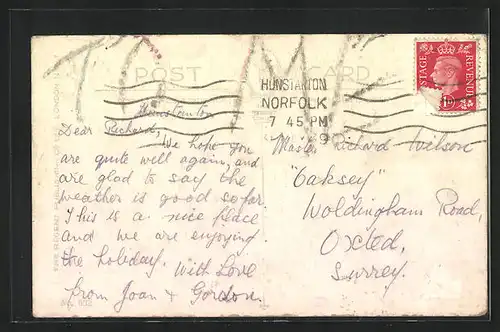 POST CARD
POSTAGE REVENUE
1D
HUNSTANTON
NORFOLK
7 45 PM
Hunstanton
Dear Richard,
We hope you
are quite well again, and
are glad to say the
weather is good so far.
This is a nice place
and we are enjoying
the holiday. With Love
from Joan & Gordon.
Master Richard Wilson
"Oaksey"
Woldingham Road,
Oxted,
Surrey.